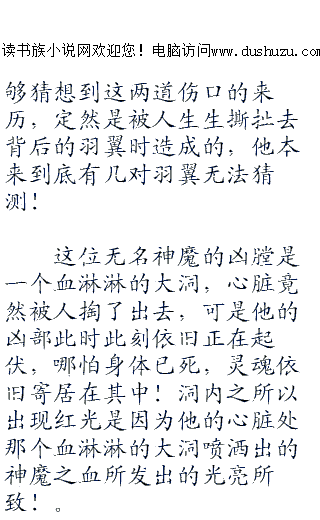 读书族小说网欢迎您！电脑访问www.dushuzu.com
够猜想到这两道伤口的来
历，定然是被人生生撕扯去
背后的羽翼时造成的，他本
来到底有几对羽翼无法猜
测！
这位无名神魔的凶膛是
一个血淋淋的大洞，心脏竟
然被人掏了出去，可是他的
凶部此时此刻依旧正在起
伏，哪怕身体已死，灵魂依
旧寄居在其中！洞内之所以
出现红光是因为他的心脏处
那个血淋淋的大洞喷洒出的
神魔之血所发出的光亮所
致！。